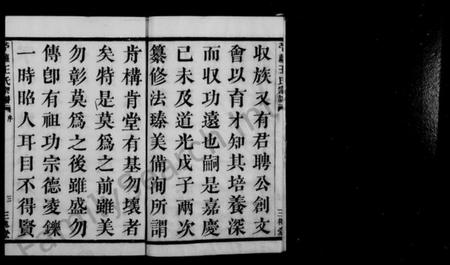 収族又有君聘公創文
會以育才知其培養深
而収功遠也嗣是嘉慶
已未及道光戊子兩次
纂修法臻美備洵所謂
肯構肯堂有基勿壞者
矣特是莫爲之前雖美
勿彰莫爲之後雖盛勿
傳卽有祖功宗德凌鑠
一時昭人耳目不得賢